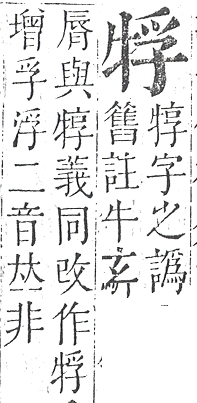 ⿰牜孚犉字之譌
舊註牛
脣與犉義同改作⿰牜孚
增孚浮二音𠀤非